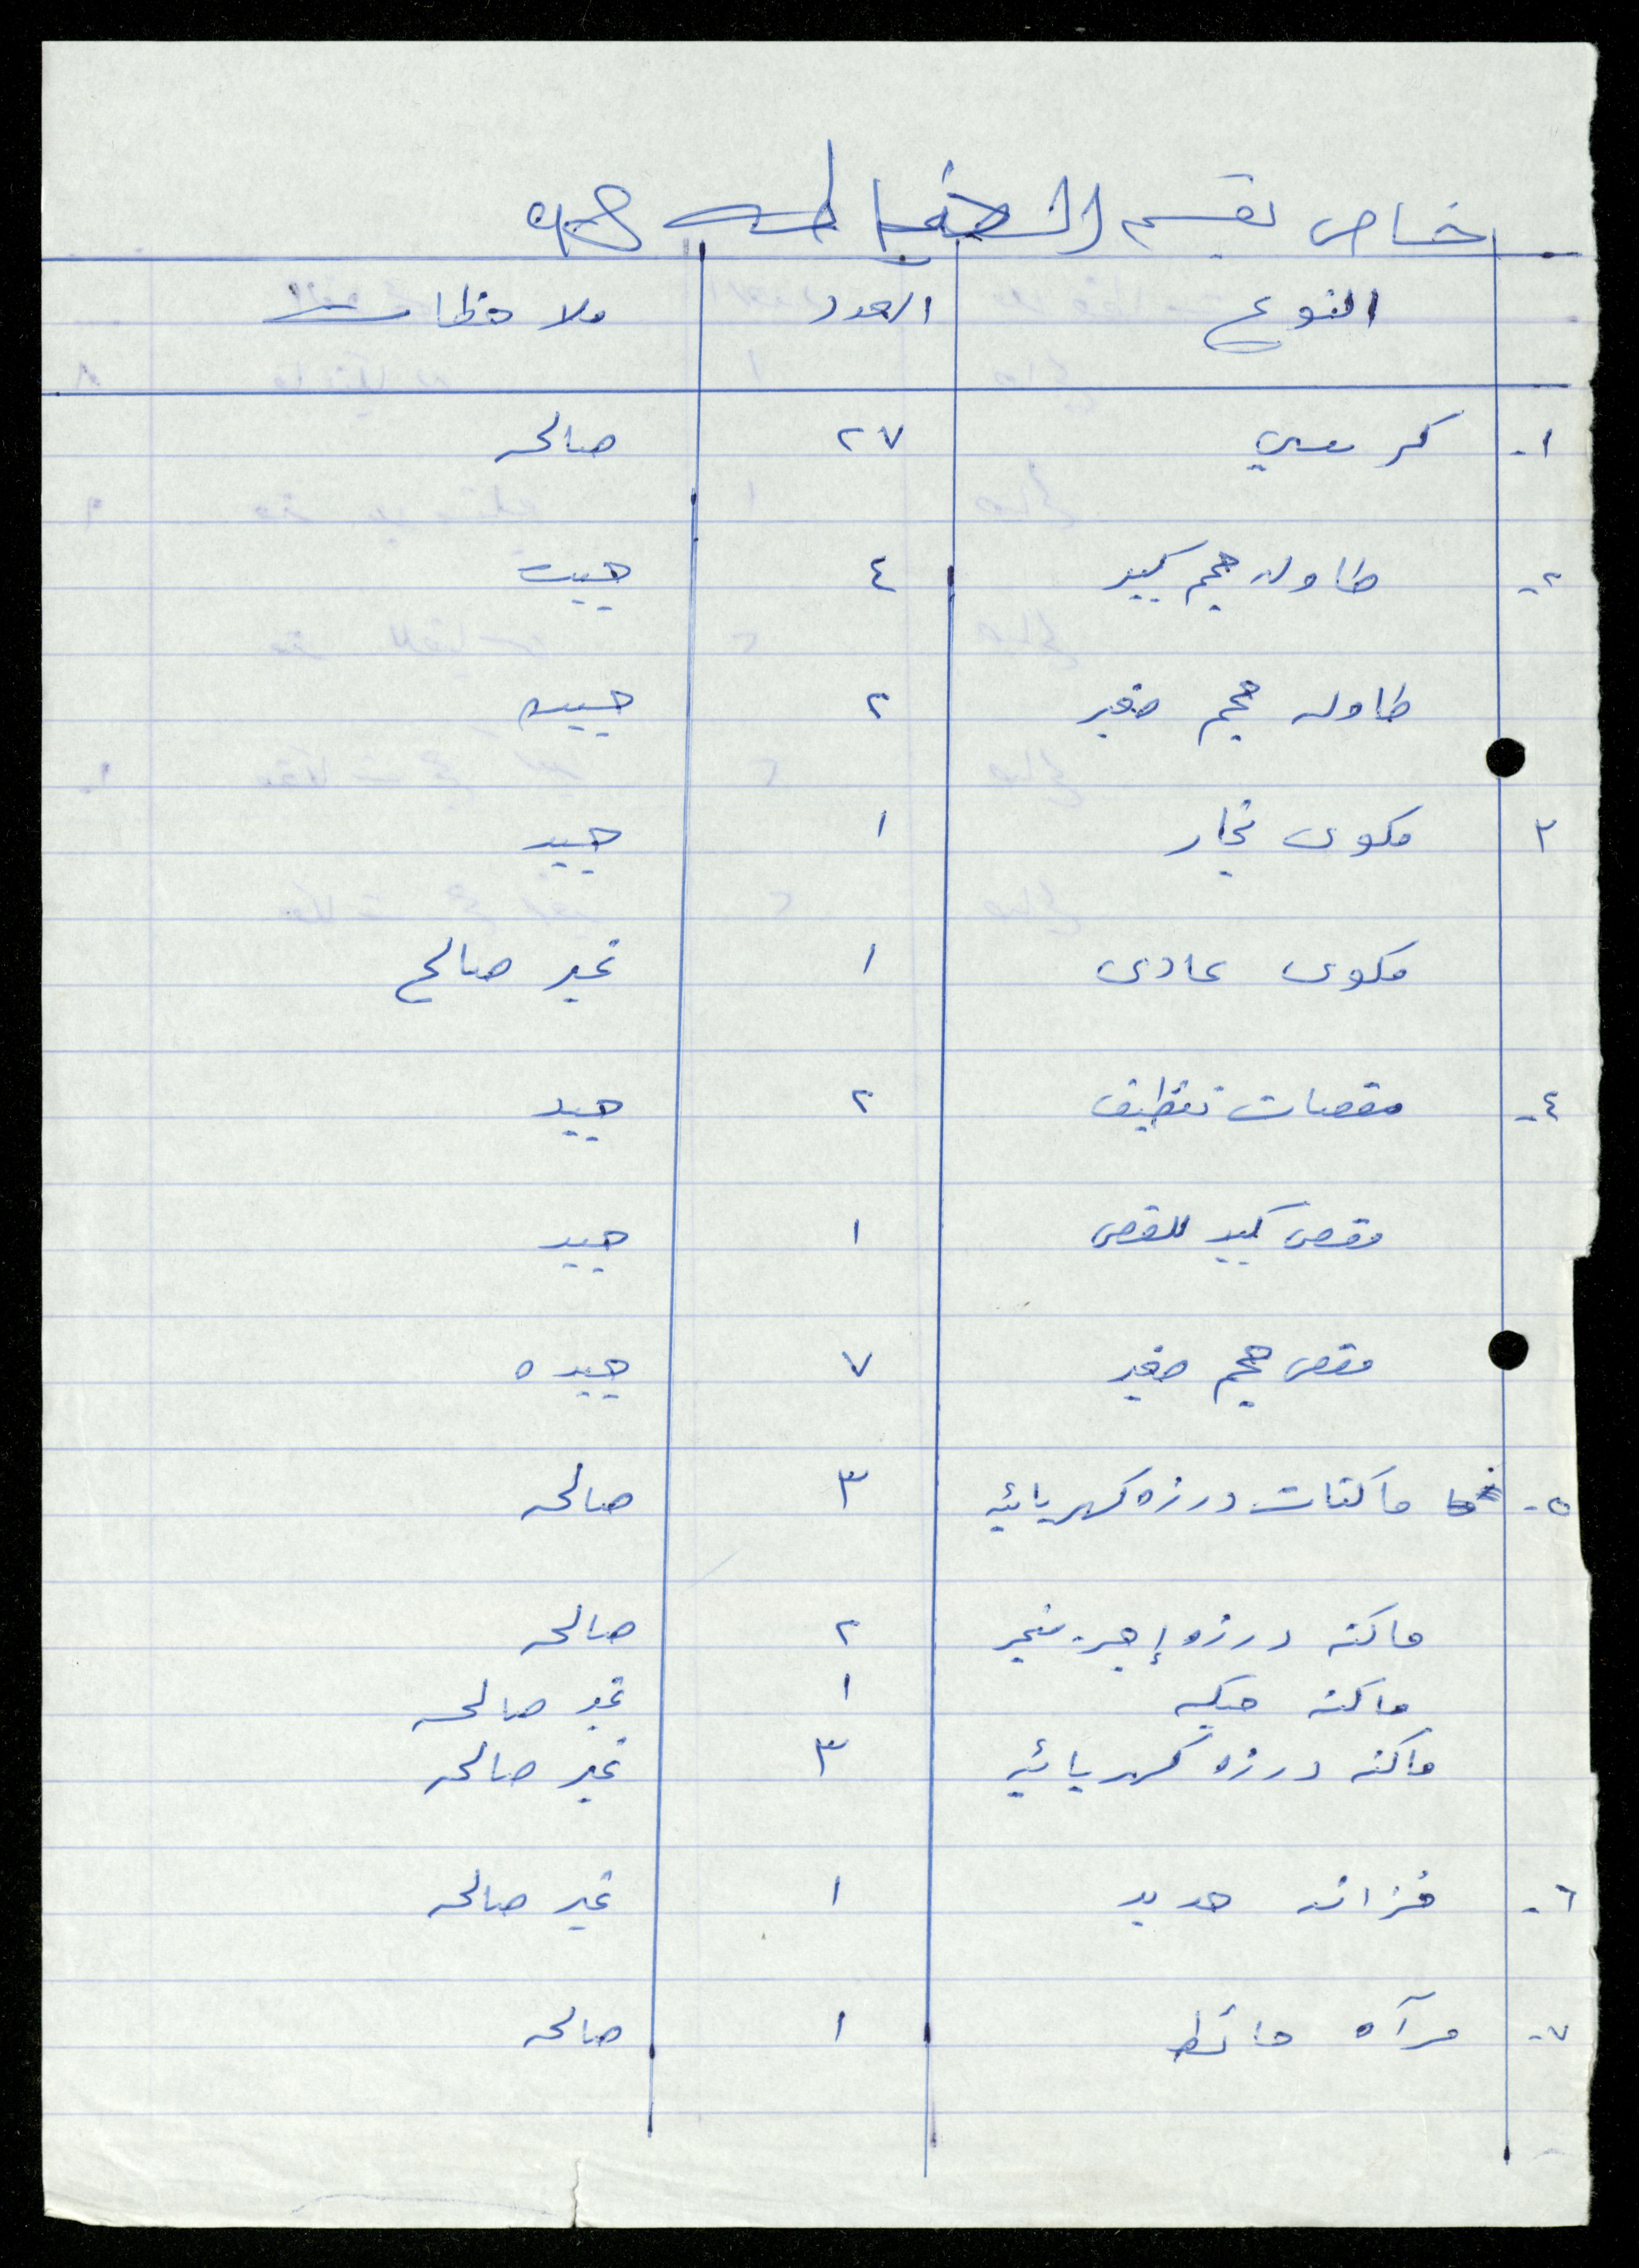 خاص بقسم الخياطه
النوع العدد ملاحظات
١- كرسي ٢٧ صالحه
٢- طاوله حجم كبير ٤ جيده
طاوله حجم صغير ٢ جيده
٣ مكوى بخار ١ جيد
مكوى عادى ١ غير صالح
٤- مقصات تنظيف ٢ جيد
مقص كبير للقص ١ جيد
مقص حجم صغير ٧ جيده
٥- ماكنات درزه كهربائيه ٣ صالحه
ماكنه درزه إجر سنجر ٢ صالحه
ماكنه حبكه ١ غير صالحه
ماكنه درزه كهربائيه ٣ غير صالحه
٦- خزانه حديد ١ غير صالحه
٧- مرآه حائط ١ صالحه